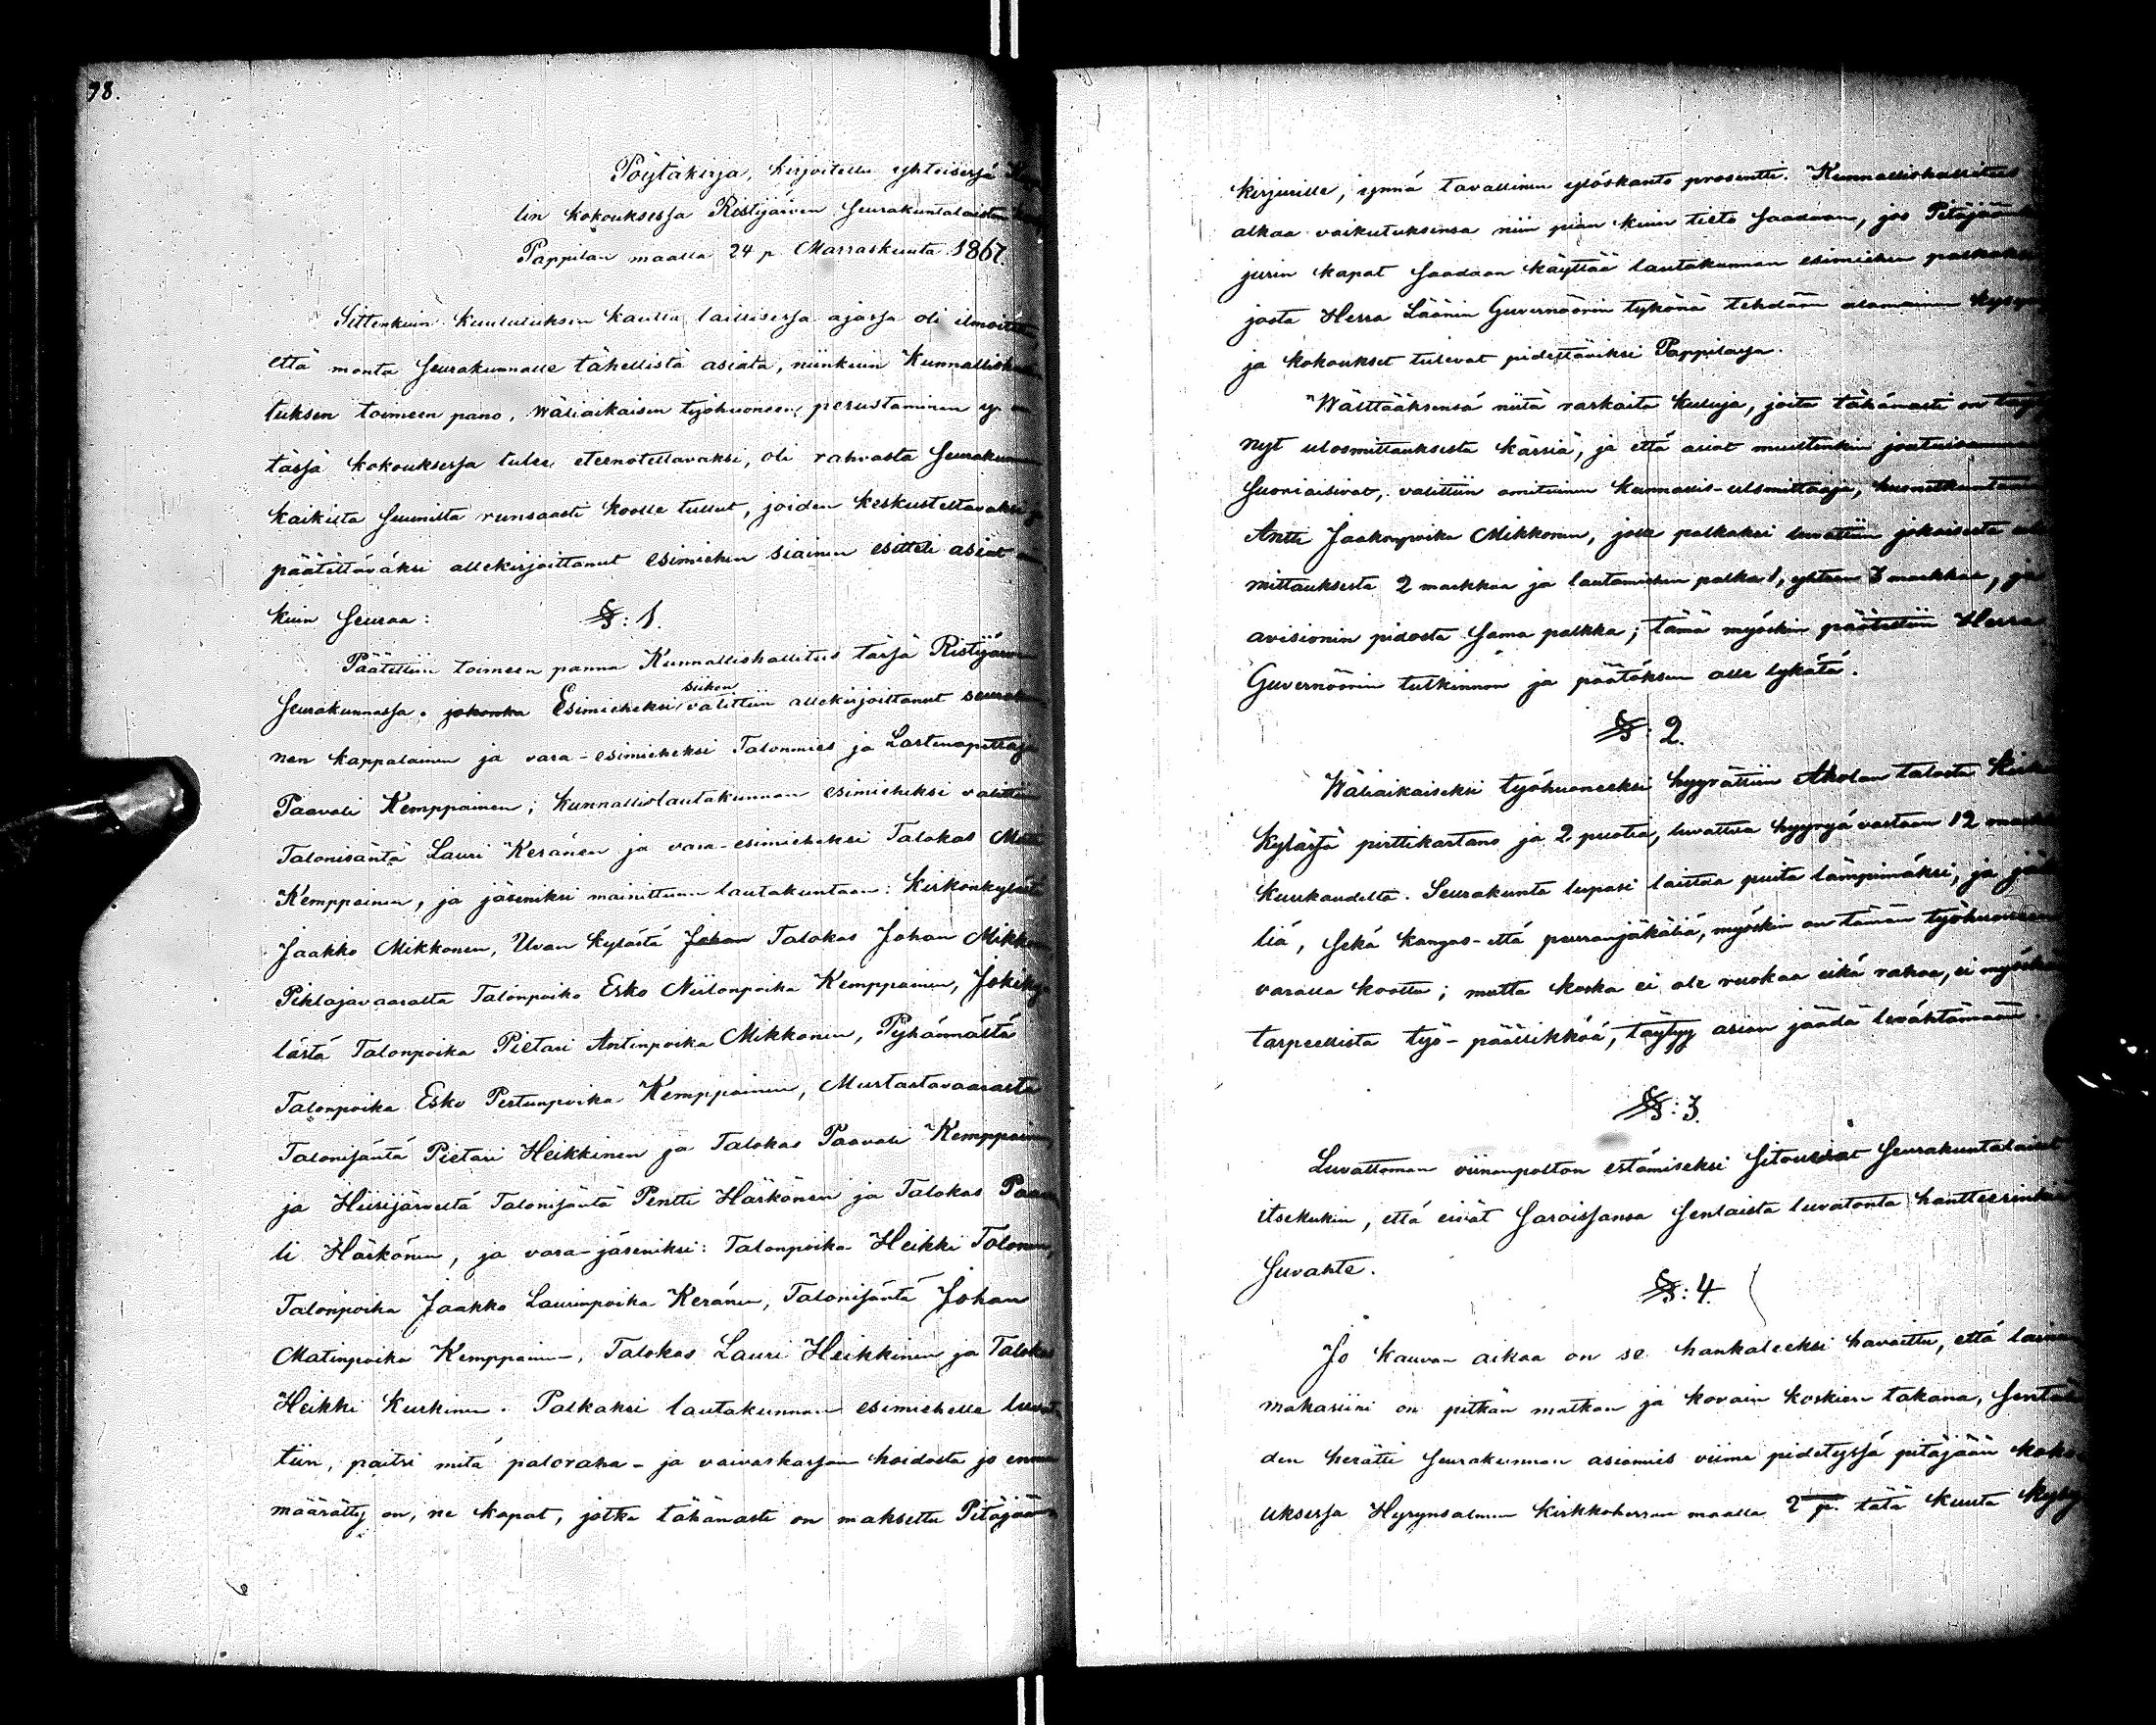 98.
Pöytäkirja, kirjoitettu yhteisessä
lin kokouksessa Ristijärven Seurakuntalaisten
Pappilan maalla 24 p Marraskuuta 1867.
Sittenkuin kuulutuksen kautta laillisessa ajassa oli ilmoitettu,
että monta Seurakunnalle tähellistä asiata, niinkuin Kunnallishalli
tuksen toimeen pano, Wäliaikaisen työhuoneen perustaminen y.
tässä kokouksessa tulee eteenotettavaksi, oli rahvasta Seurakunnan
kaikilta suunnilta runsaasti koolle tullut, joiden keskusteltavaksi ja
päätettäväksi allekirjoittanut esimiehen siainen esitteli asiat
kuin seuraa:
§: 1.
Päätettiin toimeen panna Kunnallishallitus tässä Ristijärven
Seurakunnassa. johonka Esimieheksi siihen valittiin allekirjoittanut seurakun
nan kappalainen ja vara-esimieheksi Talonmies ja Lastenopettaja
Paavali Kemppainen; Kunnallislautakunnan esimieheksi valittiin
Talonisäntä Lauri Keränen ja vara-esimieheksi Talokas Matti
Kemppainen, ja jäseniksi mainittuun lautakuntaan: Kirkonkylästä
Jaakko Mikkonen, Uvan kylästä Johan Talokas Johan Mikkonen
Pihlajavaaralta Talonpoika Esko Niilonpoika Kemppainen, Jokiky
lästä Talonpoika Pietari Antinpoika Mikkonen, Pyhännästä
Talonpoika Esko Pertunpoika Kemppainen, Mustastavaarasta
Talonisäntä Pietari Heikkinen ja Talokas Paavali Kemppainen
ja Hiisijärveltä Talonisäntä Pentti Härkönen ja Talokas Paava
li Härkönen, ja vara-jäseniksi: Talonpoika Heikki Tolonen,
Talonpoika Jaakko Laurinpoika Keränen, Talonisäntä Johan
Matinpoika Kemppainen, Talokas Lauri Heikkinen ja Talokas
Heikki Kurkinen. Palkaksi lautakunnan esimiehelle luvat
tiin, paitsi mitä paloraha- ja vaivaskassan hoidosta jo ennen
määrätty on, ne kapat, jotka tähänasti on maksettu Pitäjään
kirjurille, ynnä tavallinen ylöskanto prosentti. Kunnallishallitus
alkaa vaikutuksensa niin pian kuin tieto saadaan, jos Pitäjään
jurin kapat saadaan käyttää lautakunnan esimiehen palkaksi
josta Herra Läänin Guvernöörin tykönä tehdään alamainen kysymys
ja kokoukset tulevat pidettäviksi Pappilassa.
Wälttääksensä niitä raskaita kuluja, joita tähänasti on täy
nyt ulosmittauksista kärsiä, ja että asiat muuttenkin joutuisammin
suoriaisivat, valittiin omituinen Kunnallis-ulosmittaaja,
Antti Jaakonpoika Mikkonen, jolle palkaksi luvattiin jokaisesta ulos
mittauksesta 2 markkaa ja lautamiehen palka 1, yhteen 3 markkaa, ja
avisionin pidosta sama palkka; tämä myöskin päätettiin Herra
Guvernöörin tutkinnon ja päätöksen alle lykätä.
§: 2.
Wäliaikaiseksi työhuoneeksi hyyrättiin Aholan talosta Kirkon
kylässä pirttikartano ja 2 puotia, luvattua hyyryä vastaan 12 markkaa
kuukaudelta. Seurakunta lupasi laittaa puita lämpimäksi, ja jäkä
liä, sekä kangas- että peuranjäkäliä, myöskin on tämän työhuoneen
varalla koottu; mutta koska ei ole ruokaa eikä rahaa, ei myöskään
tarpeellista työ-päällikköä, täytyy asian jäädä levähtämään.
§: 3.
Luvattoman viinanpolton estämiseksi sitousivat Seurakuntalaiset
itsekukin, että eivät saroissansa senlaista luvatonta hantteerinkia
suvahte.
§: 4.
Jo kauvan aikaa on se hankaleeksi havaittu, että laina
makasiini on pitkän matkan ja kovain koskien takana, sentäh
den herätti Seurakunnan asiamies viime pidetyssä pitäjään koko
uksessa Hyrynsalmen kirkkoherran maalla 2 p. tätä kuuta